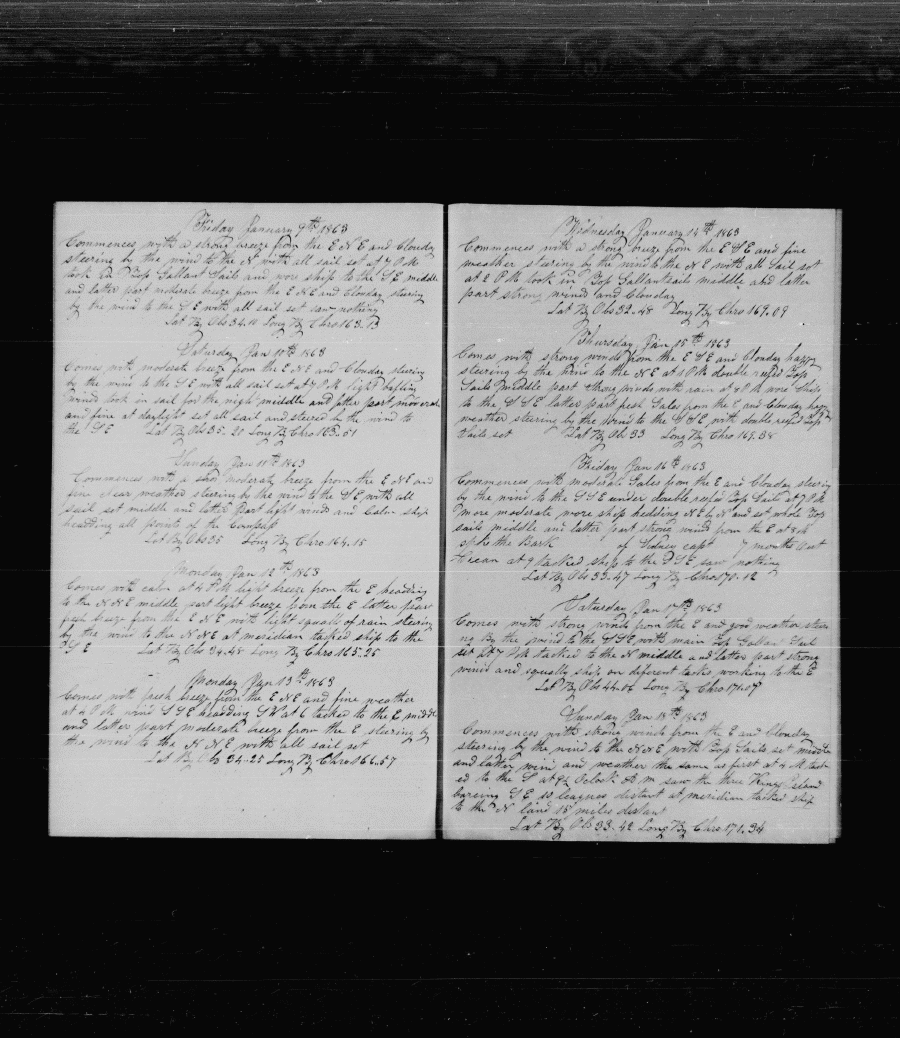 Friday January 9th 1863
Commences with a strong breeze from the E N E and Clouday
steering by the wind to the N with all sail set at 7 P M
took in Top Gallant Sail and wore ship to the S E middle
and latter part moderate breeze from the E N E and Clouday steering
by the wind to the S E with all sail set saw nothing
Lat By Obs 34.11 Long By Chro 163.13
Saturday Jan 10th 1863
Comes with moderate breeze from the E N E and Clouday steering
by the wind to the S E with all sail set at 7 P M light bafling
wind took in sail for the nigh middle and latter part moderate
and fine at daylight set all sail and steered by the wind to
the S E Lat By Obs 35.21 Long By Chro 163.51
Sunday Jan 11th 1863
Commences with a moderate breeze from the E N E and
fine clear weather steering by the wind to the S E with all
sail set middle and latter part light winds and Calm ship
heading all points of the Compass
Lat By Obs 35 Long By Chro 164.15
Monday Jan 12th 1863
Comes with calm at 4 P M light breeze from the E heading
to the N N E middle part light breeze from the E latter part
fresh breeze from the E N E with light squalls of rain steering
by the wind to the N N E at meridian tacked ship to the
S E Lat By Obs 34.48 Long By Chro 165.25
Monday Jan 13th 1863
Comes with fresh breeze from the E N E and fine weather
at 4 P M wind S S E heading S W at 6 tacked to the E middle
and latter part moderate breeze from the E steering by
the wind to the N N E with all sail set
Lat By Obs 34.25 Long By Chro 166.57
Wednesday January 14th 1863
Commences with a strong breeze from the E S E and fine
weather steering by the wind to the N E with all sail set
at 2 P M took in Top Gallantsails middle and latter
part strong wind and Clouday
Lat By Obs 32.48 Long By Chro 169.09
Thursday Jan 15th 1863
Comes with strong winds from the E S E and Clouday hazy
steering by the wind to the N E at 1 P M double reefed Top
Sails middle part strong winds with rain at 4 P M wore ship
to the S S E latter part fresh Gales from the E and Clouday hazy
weather steering by the wind to the S S E with double reefed Top
Sails set Lat By Obs 33 Long By Chro 169.38
Friday Jan 16th 1863
Commences with moderate Gales from the E and Clouday steering
by the wind to the S S E under double reefed Top Sails at 7 P M
more moderate wore ship hedding N E by N and set whole Top
sails middle and latter part strong wind from the E at 8 A M
spoke the Bark of Sidney capt 7 months out
at 9 tacked ship to the S S E saw nothing
Lat By Obs 33.47 Long By Chro 170.12
Saturday Jan 17th 1863
Comes with strong winds from the E and good weather steer
ng By the wind to the S S E with main Top Gallant Sail
set at 7 P M tacked to the N middle and latter part strong
winds and squally ship on diferent tacks working to the E
Lat By Obs 44.06 Long By Chro 170.07
Sunday Jan 18th 1863
Commences with strong winds from the E and Clouday
steering by the wind to the N N E with Top Sails set middle
and latter wind and weather the same as first at 4 A M tack
ed to the S at 9½ Oclock A M saw the three Kings Island
bareing S E 10 leagues distant at meridian tacked ship
to the N land 15 miles distant
Lat By Obs 33.42 Long By Chro 171.34